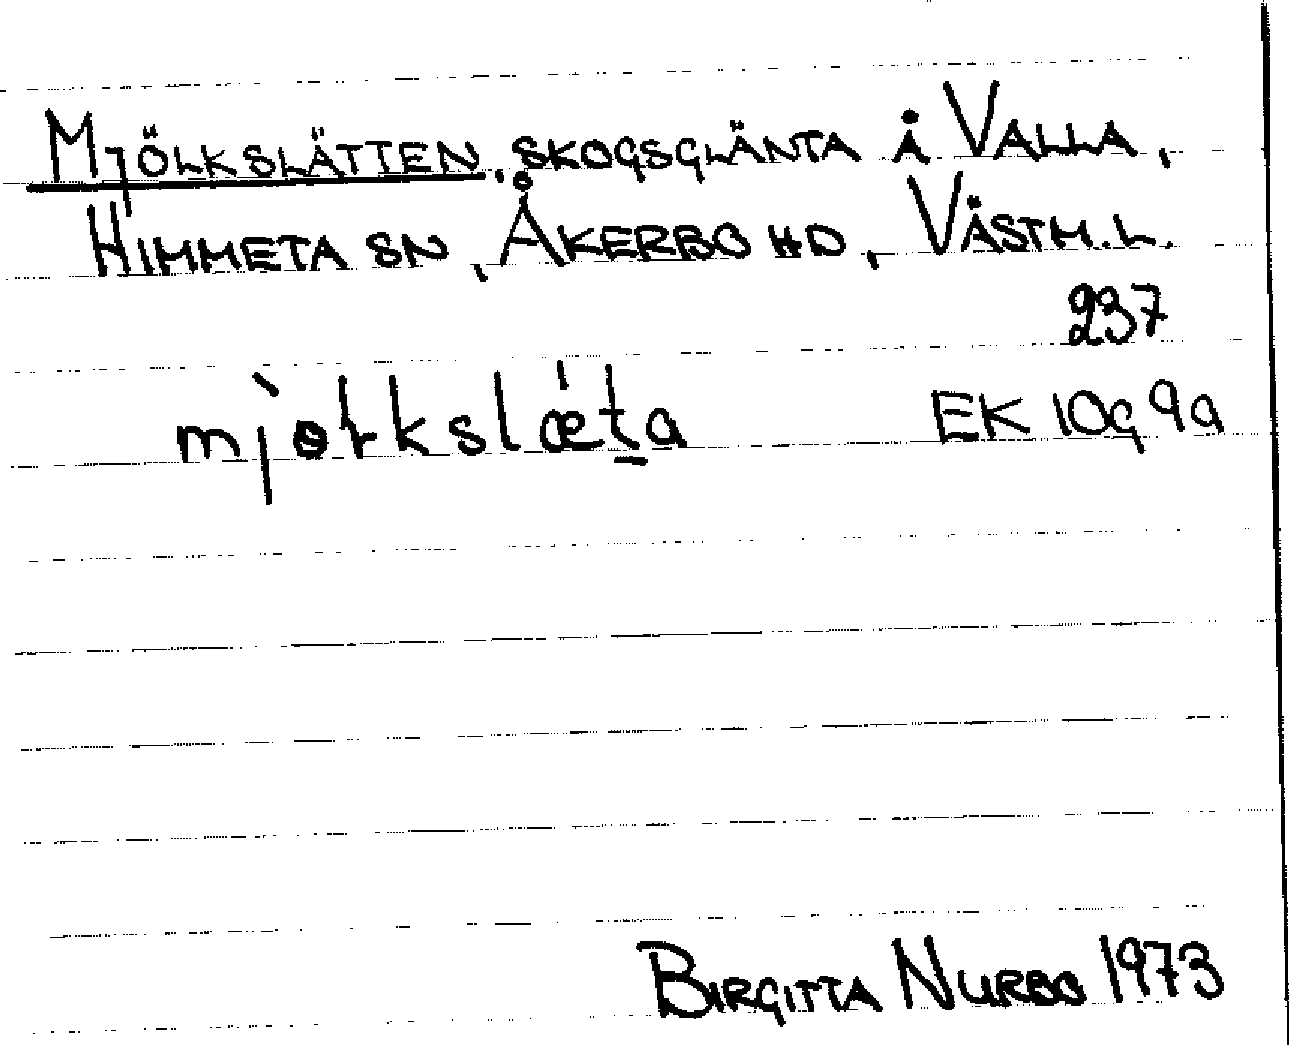 Mjölkslätten, skogsglänta å Valla,
Himmeta sn, Åkerbo hd, Västm.l.
237
mjò̵łkslǽt̲a
EK 10g 9a
Birgitta Nurbo 1973